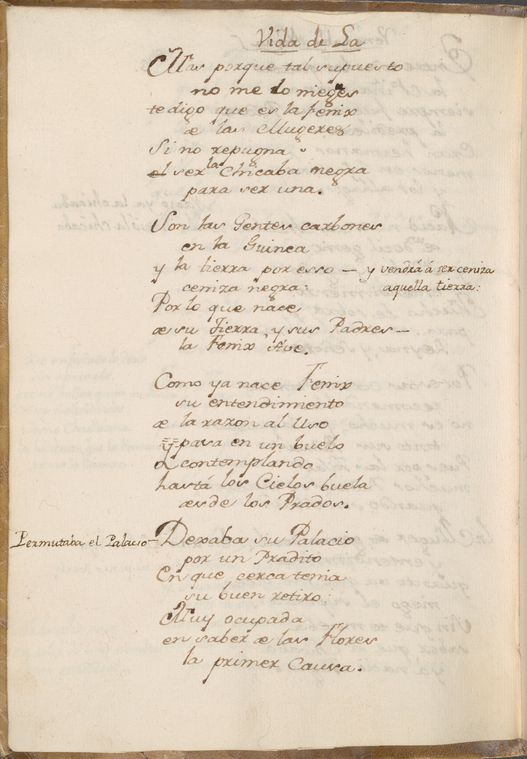 Vida de La
Mas porque tal supuesto
no me lo nieges
te digo que es la fenix
de las Mugeres
Si no repugna
el ser la Chicaba negra
para ser una.
Son las Gentes carbones
en la Guinea
y la tierra por esso — y vendrá á ser ceniza
ceniza negra: aquella tierra:
Por lo que nace
de su Tierra, y sus Padres —
la Fenix Ave.
Como ya nace Fenix
su entendimiento
de la razon al Uso
passa en un buelo
Y contemplando
hasta los Cielos buela
desde los Prados.
Permutaba el Palacio — Dexaba su Palacio
por un Pradito
En que cerca tenia
su buen retiro:
Muy ocupada
en saber de las Flores
la primer Causa.